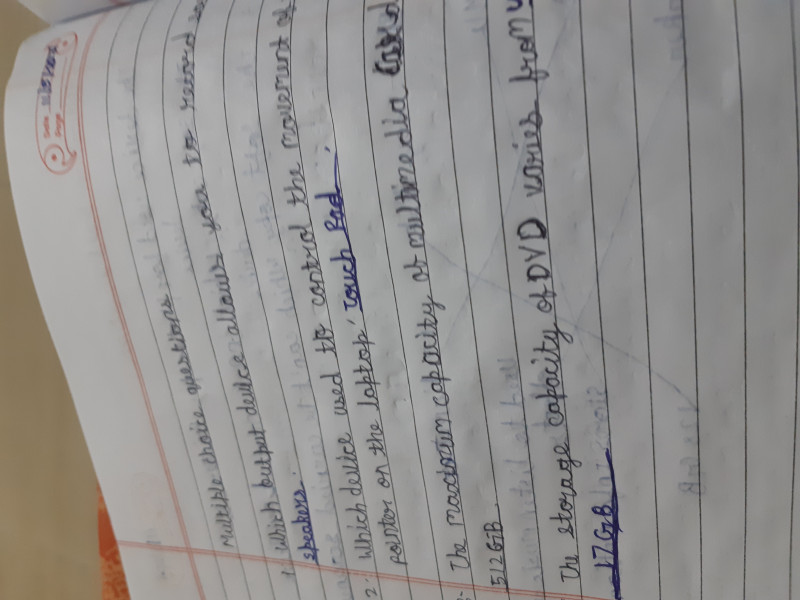 Date
Page
Multiple choice questions
1. Which butput device allows you to record
speakers.
2. Which device used to control the movement of
pointer on the laptop' touch Pad.
The maximim capacity of multimedia Card
512GB.
The storage capacity of DVD varies from
17GB